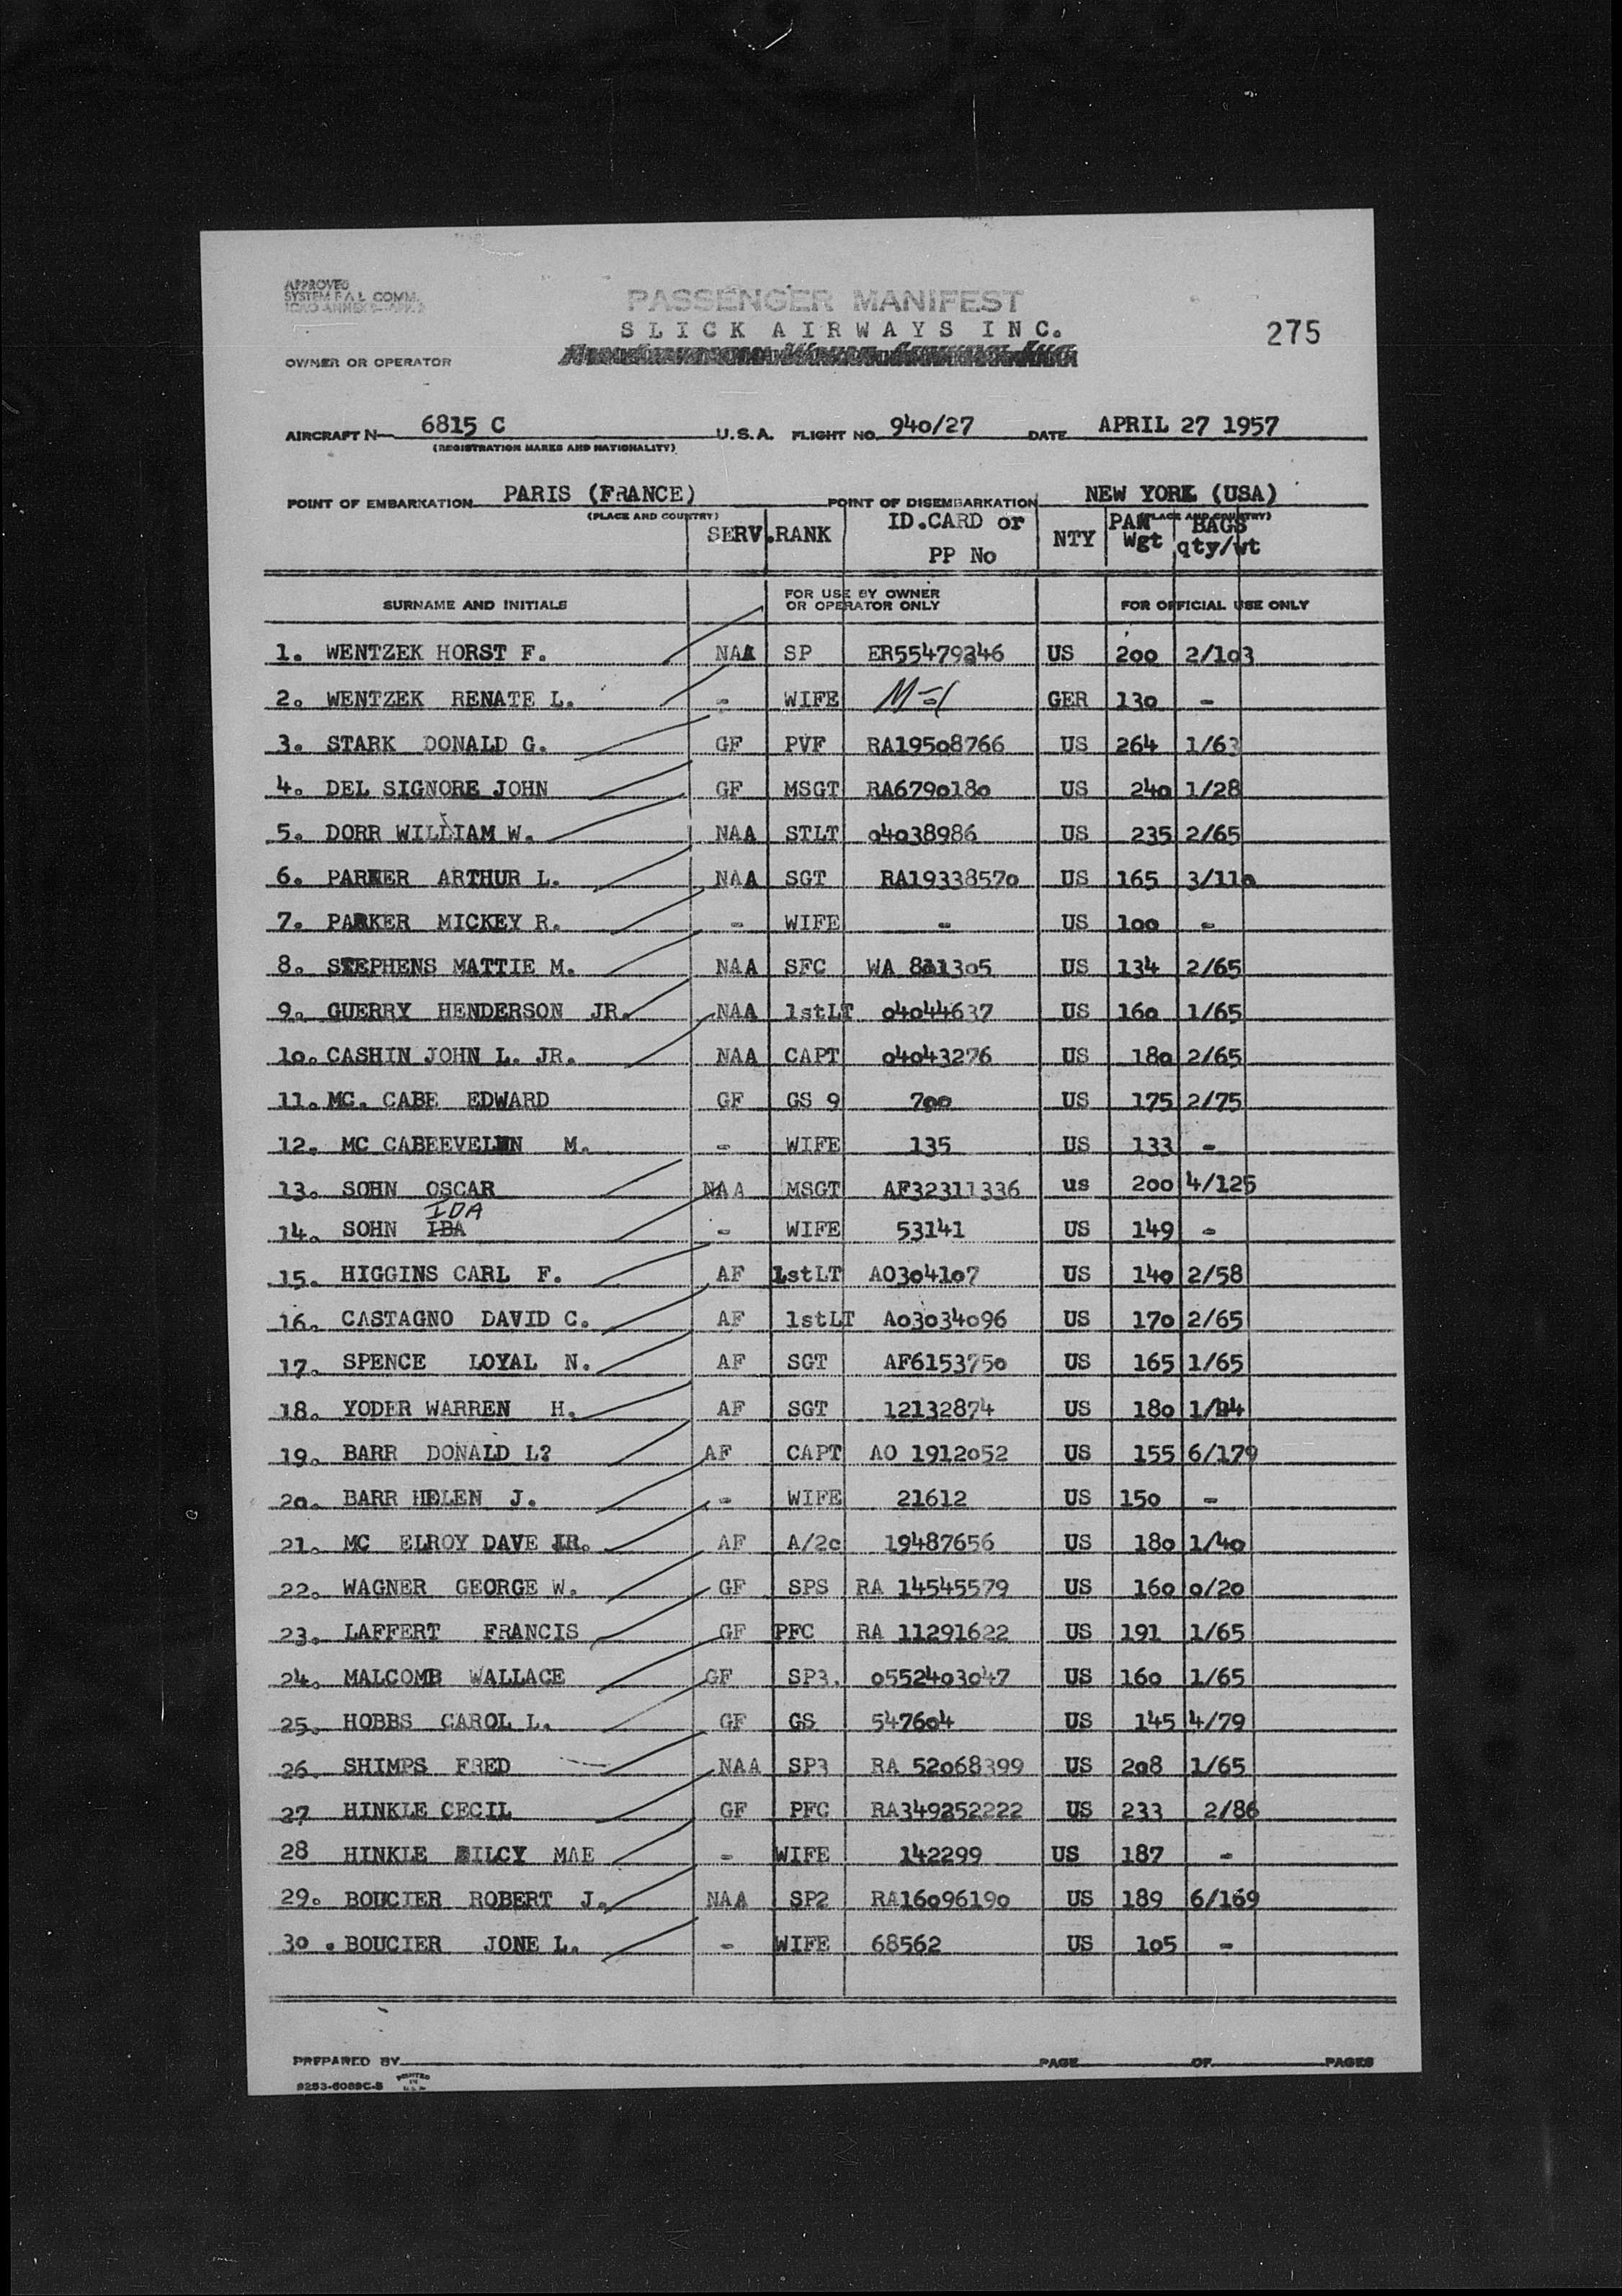 APPROVED
SYSTEM F A L COMM.
ICAO ANNEX 9-APP. 2
PASSENGER MANIFEST
SLICK AIRWAYS INC.
275
OWNER OR OPERATOR
AIRCRAFT N— 6815 C U.S.A. FLIGHT NO. 940/27 DATE APRIL 27 1957
(REGISTRATION MARKS AND NATIONALITY)
POINT OF EMBARKATION PARIS (FRANCE) POINT OF DISEMBARKATION NEW YORK (USA)
(PLACE AND COUNTRY) (PLACE AND COUNTRY)
SERV. RANK ID.CARD or PP No NTY PAX Wgt BAGS qty/wt
SURNAME AND INITIALS FOR USE BY OWNER OR OPERATOR ONLY FOR OFFICIAL USE ONLY
1. WENTZEK HORST F. NAA SP ER55479346 US 200 2/103
2. WENTZEK RENATE L. - WIFE GER 130 -
3. STARK DONALD G. GF PVF RA19508766 US 264 1/63
4. DEL SIGNORE JOHN GF MSGT RA6790180 US 240 1/28
5. DORR WILLIAM W. NAA STLT 04038986 US 235 2/65
6. PARKER ARTHUR L. NAA SGT RA19338570 US 165 3/110
7. PARKER MICKEY R. - WIFE - US 100 -
8. STEPHENS MATTIE M. NAA SFC WA 811305 US 134 2/65
9. GUERRY HENDERSON JR. NAA 1stLT 04044637 US 160 1/65
10. CASHIN JOHN L. JR. NAA CAPT 04043276 US 180 2/65
11. MC. CABE EDWARD GF GS 9 700 US 175 2/75
12. MC CABEEVELYN M. - WIFE 135 US 133 -
13. SOHN OSCAR NAA MSGT AF32311336 us 200 4/125
IDA
14. SOHN IBA - WIFE 53141 US 149 -
15. HIGGINS CARL F. AF 1stLT AO304107 US 140 2/58
16. CASTAGNO DAVID C. AF 1stLT AO3034096 US 170 2/65
17. SPENCE LOYAL N. AF SGT AF6153750 US 165 1/65
18. YODER WARREN H. AF SGT 12132874 US 180
19. BARR DONALD L? AF CAPT AO 1912052 US 155 6/179
20. BARR HELEN J. - WIFE 21612 US 150 -
21. MC ELROY DAVE JR. AF A/2c 19487656 US 180 1/40
22. WAGNER GEORGE W. GF SPS RA 14545579 US 160 0/20
23. LAFFERT FRANCIS GF PFC RA 11291622 US 191 1/65
24. MALCOMB WALLACE GF SP3. 0552403047 US 160 1/65
25. HOBBS CAROL L. GF GS 547604 US 145 4/79
26. SHIMPS FRED NAA SP3 RA 52068399 US 208 1/65
27 HINKLE CECIL GF PFC RA349252222 US 233 2/86
28 HINKLE MAE - WIFE 142299 US 187 -
29. BOUCIER ROBERT J. NAA SP2 RA16096190 US 189 6/169
30 . BOUCIER JONE L. - WIFE 68562 US 105 -
PREPARED BY PAGE OF PAGES
9253-6089C-5 PRINTED IN U.S.A.